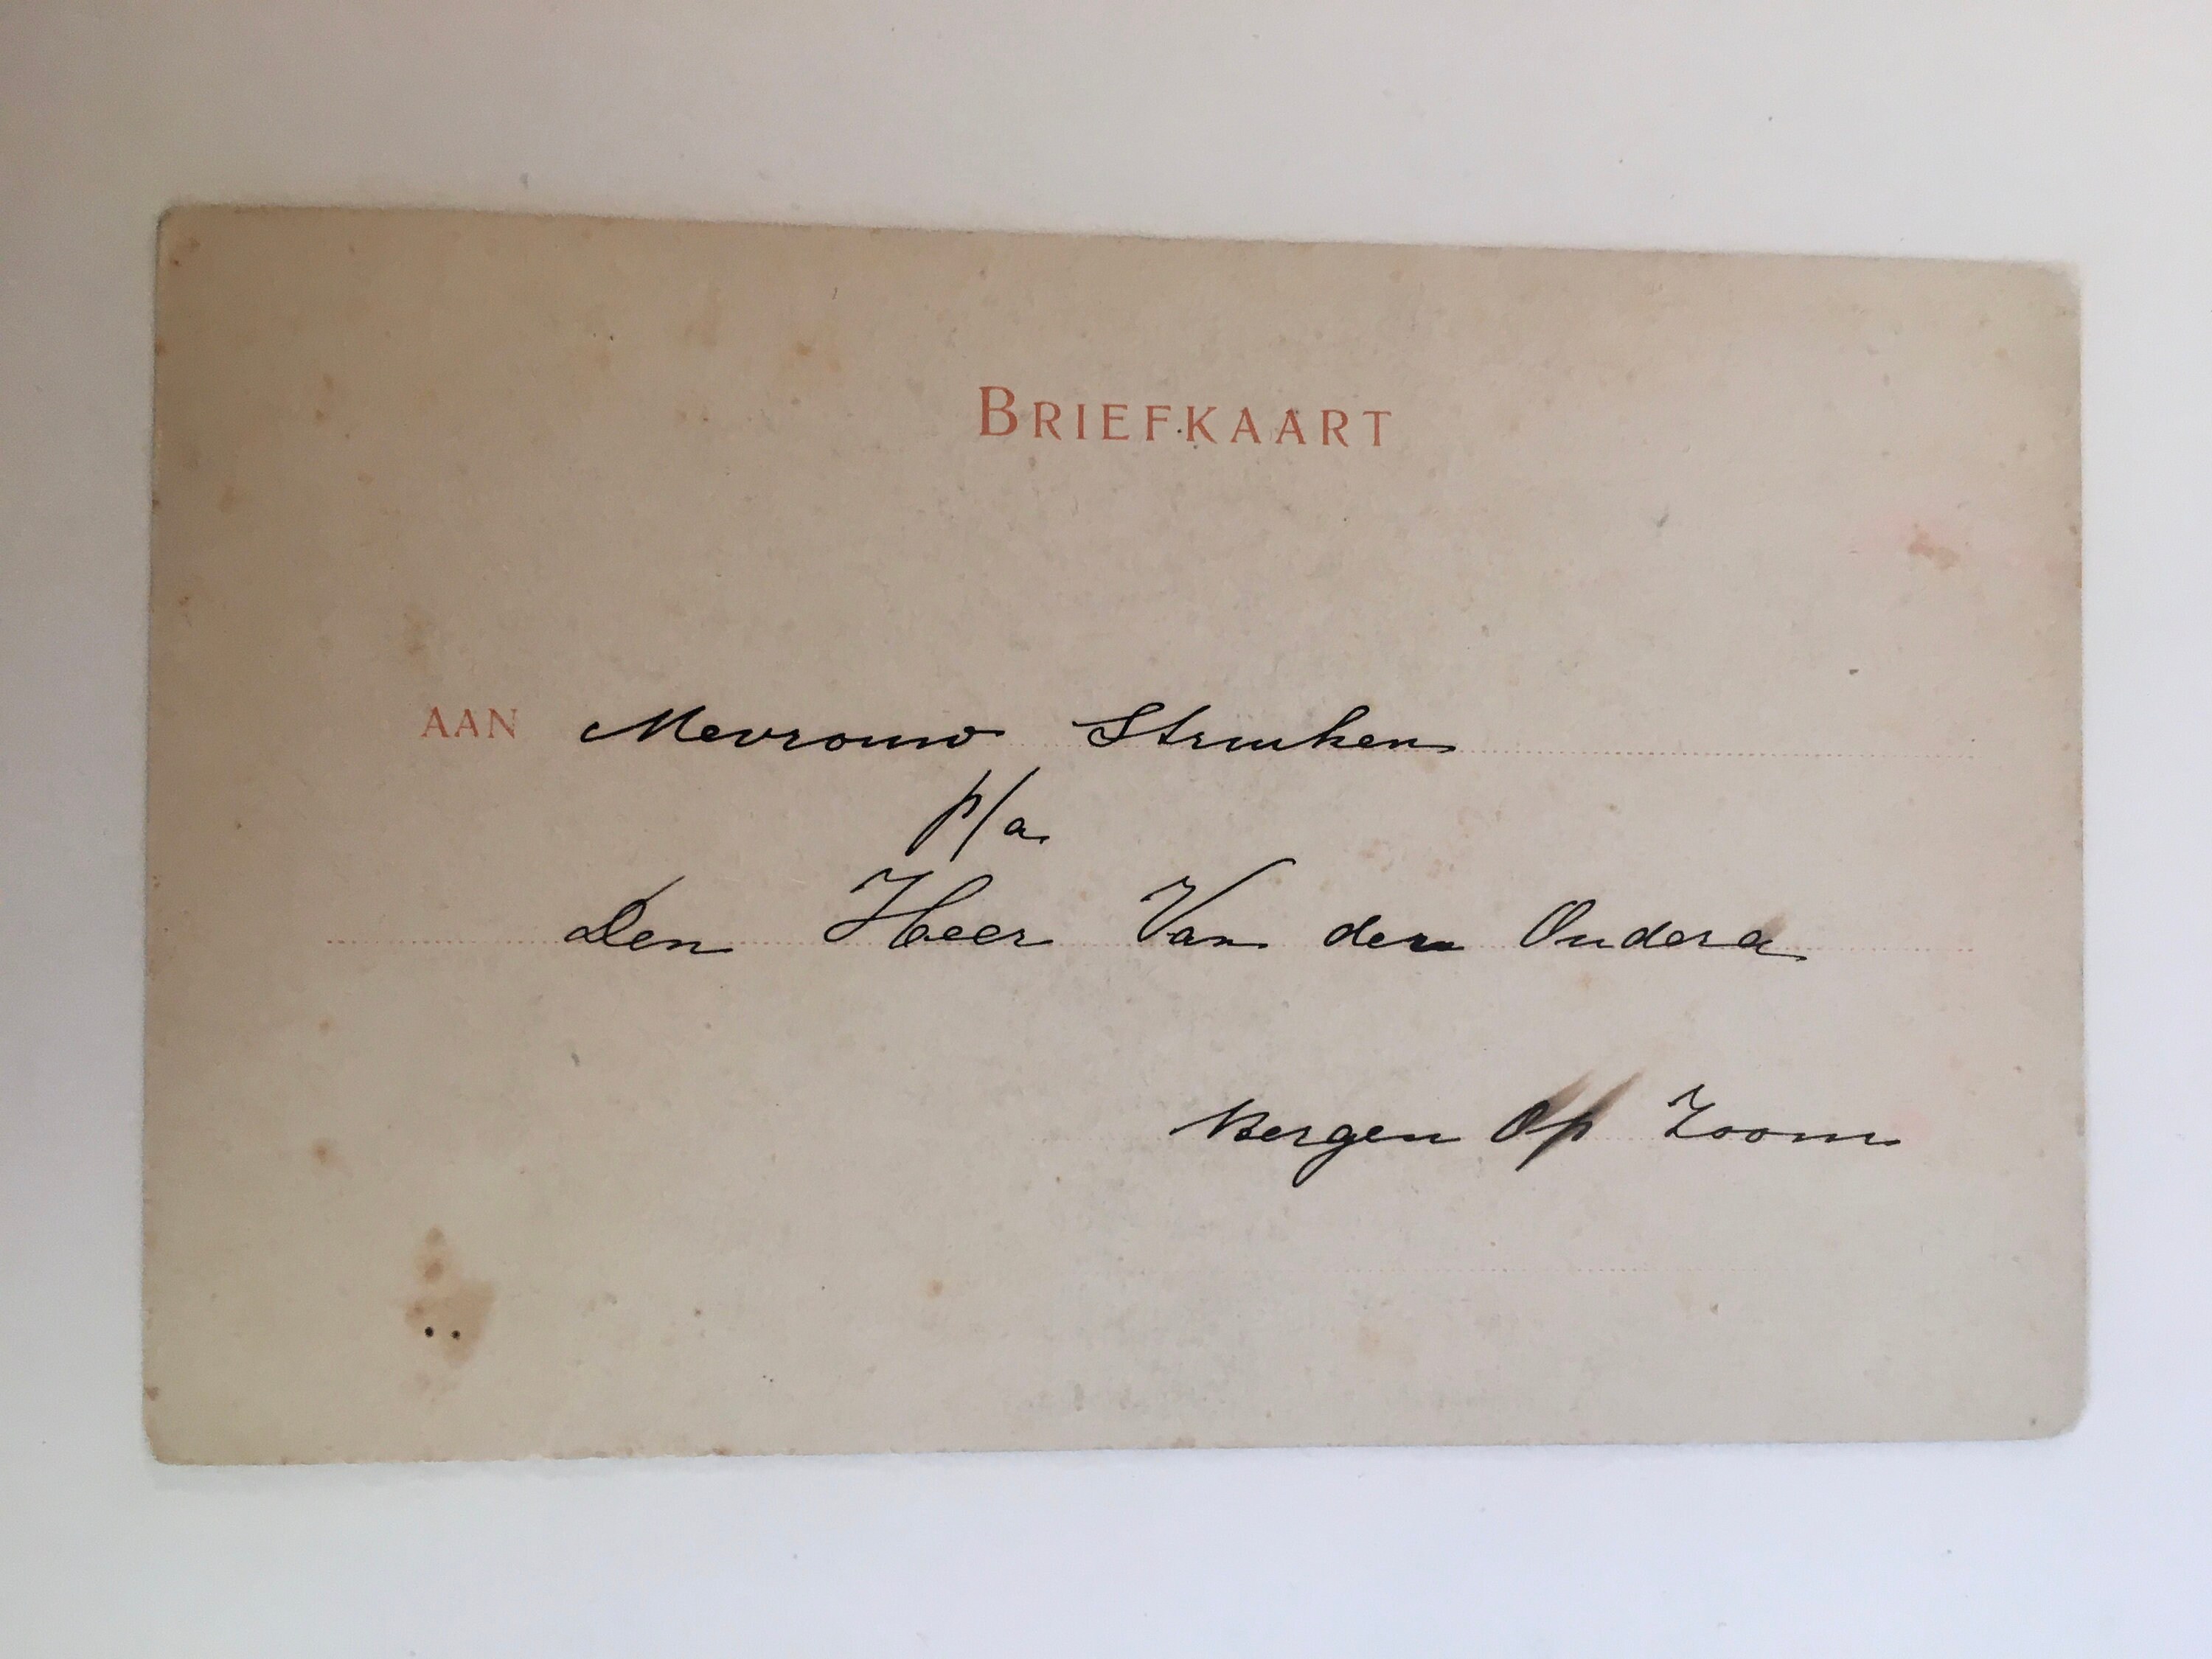 BRIEFKAART
AAN Mevrouw Struuken
p/a
Den Heer Van den Oudera
Bergen Op Zoom